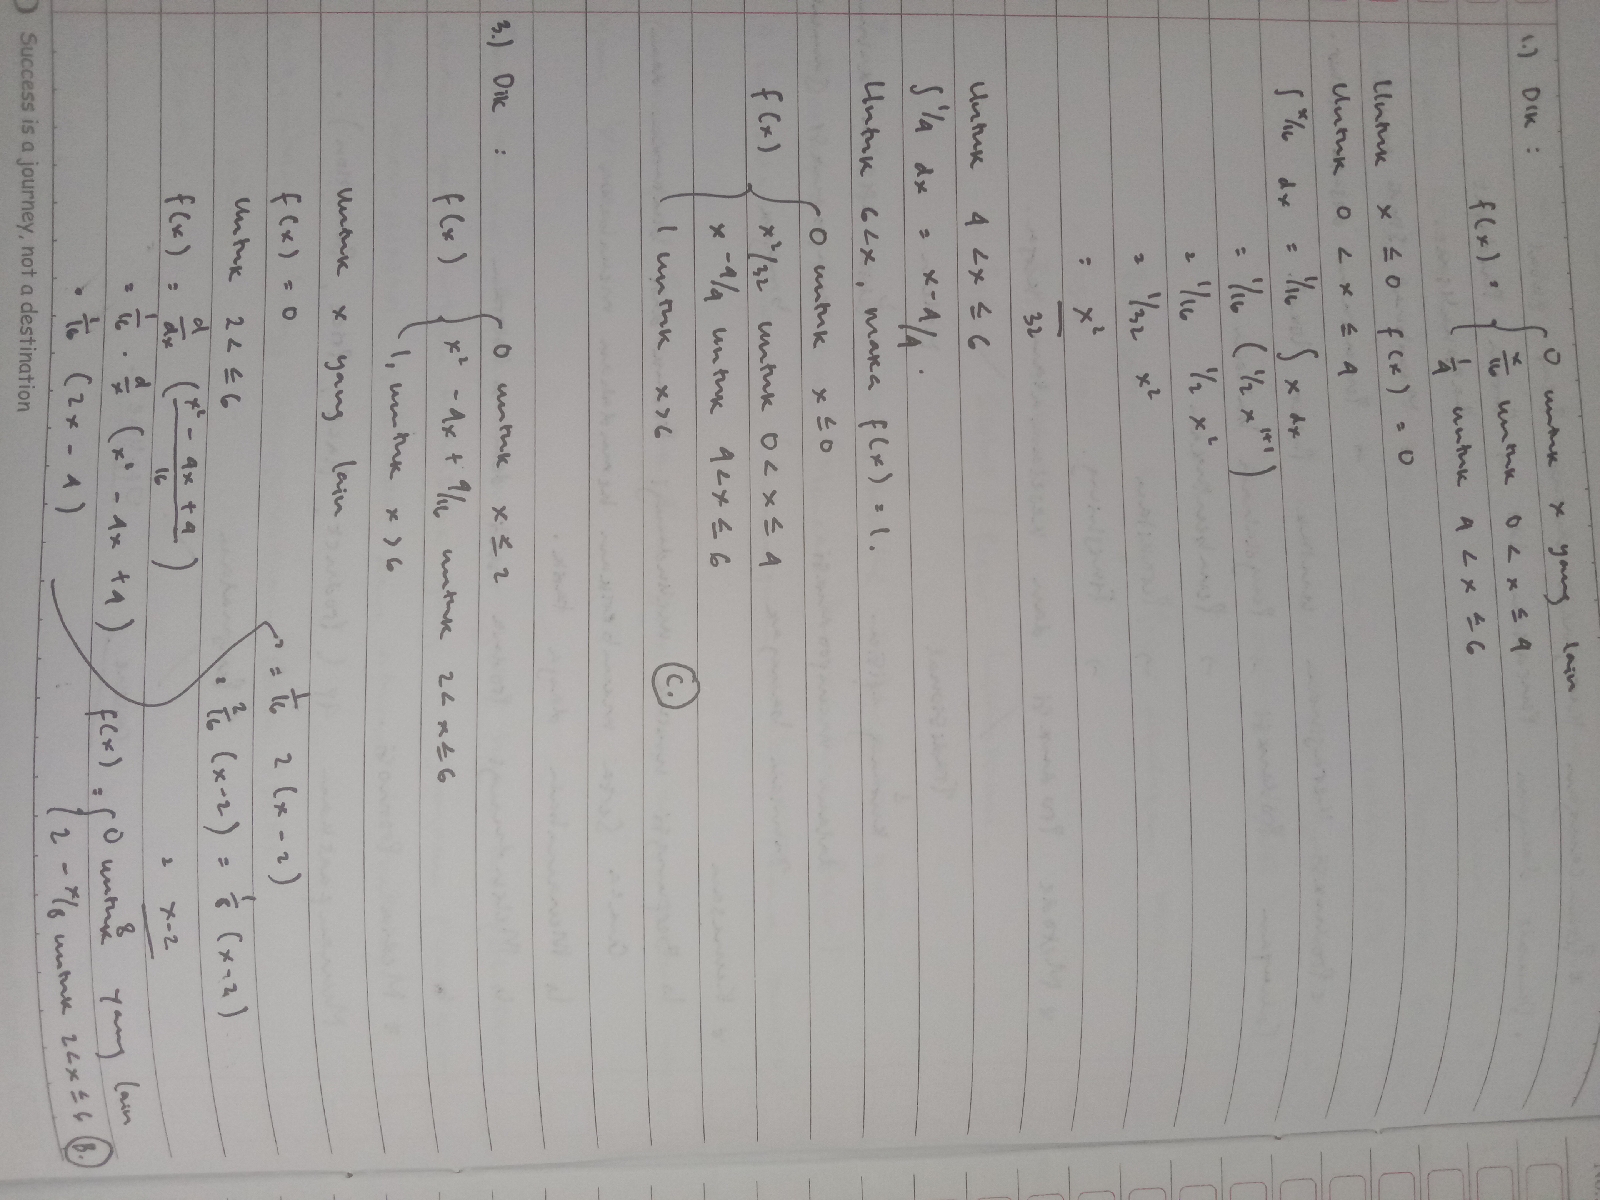 1.) Dik :
0 untuk x yang lain
f(x) = { x/16 untuk 0 < x ≤ 4
1/4 untuk 4 < x ≤ 6
Untuk x ≤ 0 f(x) = 0
Untuk 0 < x ≤ 4
∫ x/16 dx = 1/16 ∫ x dx
= 1/16 ( 1/2 x^1+1 )
= 1/16 1/2 x²
= 1/32 x²
= x²/32
Untuk 4 < x ≤ 6
∫ 1/4 dx = x-4/4.
Untuk 6 < x, maka f(x) = 1.
0 untuk x ≤ 0
f(x) { x²/32 untuk 0 < x ≤ 4
x-4/4 untuk 4 < x ≤ 6
1 untuk x > 6
C.
3.) Dik :
0 untuk x ≤ 2
f(x) { x² - 4x + 4/16 untuk 2 < x ≤ 6
1, untuk x > 6
Untuk x yang lain
f(x) = 0
Untuk 2 < ≤ 6
f(x) = d/dx ( x² - 4x + 4 / 16 )
= 1/16 . d/x (x² - 4x + 4).
= 1/16 (2x - 4)
= 1/16 2 (x - 2)
= 2/16 (x-2) = 1/8 (x-2)
= x-2/8
f(x) = { 0 untuk yang lain
2 - x/8 untuk 2 < x ≤ 6 B.
Success is a journey, not a destination